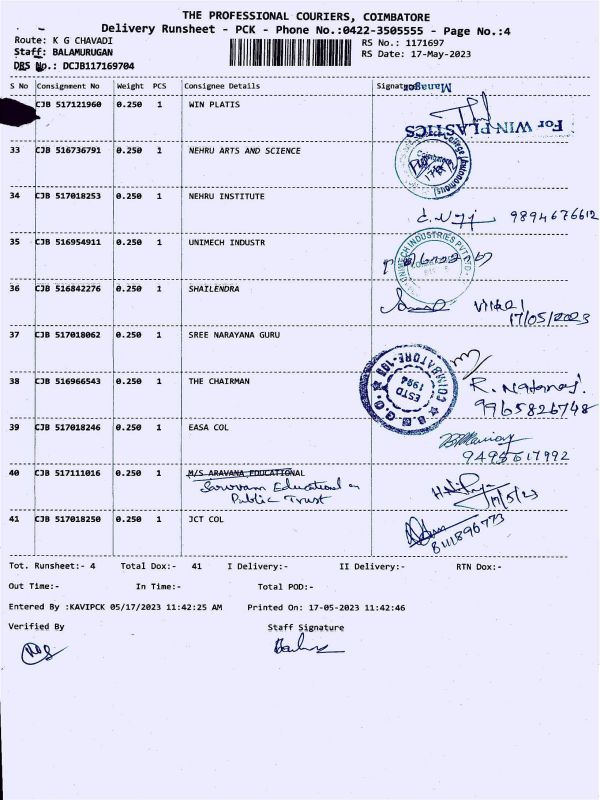 THE PROFESSIONAL COURIERS, COIMBATORE
Delivery Runsheet - PCK - Phone No.:0422-3505555 - Page No.:4
Route: K G CHAVADI
RS No.: 1171697
Staff: BALAMURUGAN
RS Date: 17-May-2023
DRS No.: DCJB117169704
S No Consignment No Weight PCS Consignee Details Signature
Manager
CJB 517121960 0.250 1 WIN PLATIS
For WIN PLASTICS
33 CJB 516736791 0.250 1 NEHRU ARTS AND SCIENCE
34 CJB 517018253 0.250 1 NEHRU INSTITUTE
9894676612
35 CJB 516954911 0.250 1 UNIMECH INDUSTR
UNIMECH INDUSTRIES PVT LTD
36 CJB 516842276 0.250 1 SHAILENDRA
17/05/2023
37 CJB 517018062 0.250 1 SREE NARAYANA GURU
COIMBATORE-105
ESTD
1994
38 CJB 516966543 0.250 1 THE CHAIRMAN
9965826748
39 CJB 517018246 0.250 1 EASA COL
40 CJB 517111016 0.250 1 M/S ARAVANA EDUCATIONAL
Educational
Public Trust
17/5/23
41 CJB 517018250 0.250 1 JCT COL
8111896773
Tot. Runsheet:- 4 Total Dox:- 41 I Delivery:- II Delivery:- RTN Dox:-
Out Time:- In Time:- Total POD:-
Entered By :KAVIPCK 05/17/2023 11:42:25 AM Printed On: 17-05-2023 11:42:46
Verified By Staff Signature